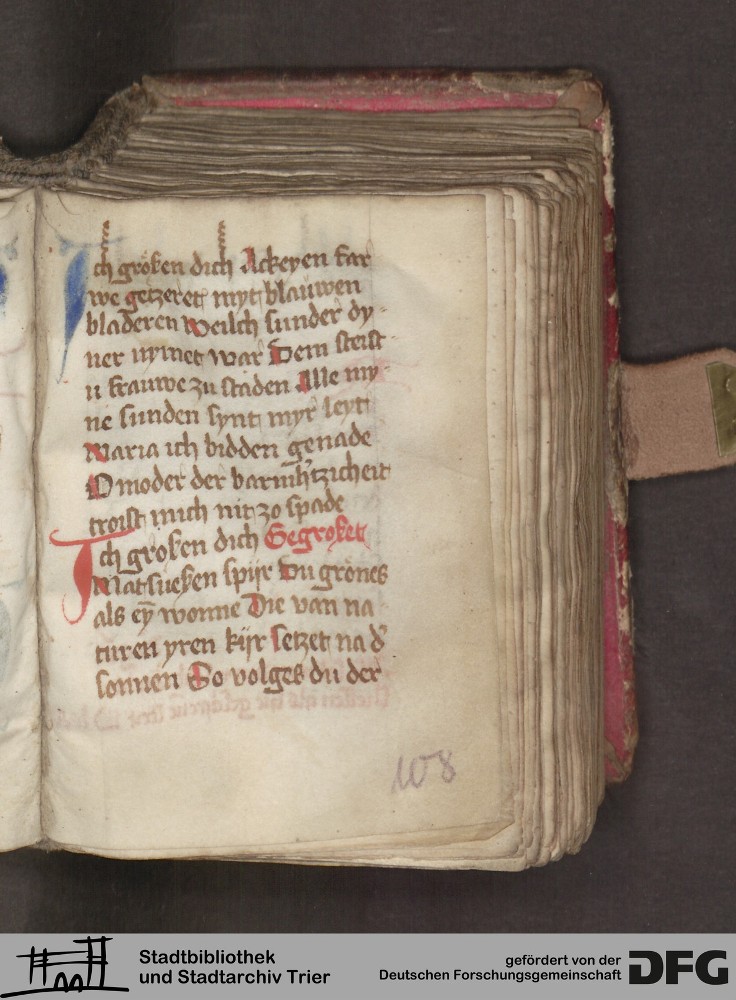 Ich grösen dich Ackeyen far
we getzeret myt blauwen
bladeren weilch sunder dy-
ner nymet war Dem steist
u frauwe zu staden Alle my-
ne sunden synt myr leyt
Maria ich bidden genade
O moder der barmhtzicheit
troist mich nit zo spade
Ich grosen dich Gegroset
Matsuesen spijr Du grönes
als eÿ wonne Die van na
turen yren kijr setzet na d'
sonnen So volges du der
108
Stadtbibliothek
und Stadtarchiv Trier
gefördert von der
Deutschen Forschungsgemeinschaft
DFG